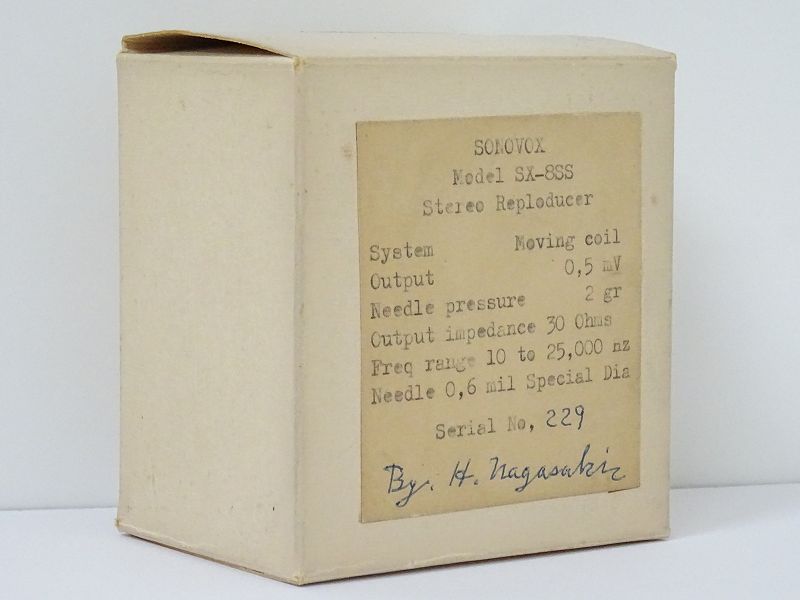 SONOVOX
Model SX-8SS
Stereo Reploducer
System Moving coil
Output 0,5 mV
Needle pressure 2 gr
Output impedance 30 Ohms
Freq range 10 to 25,000 nz
Needle 0,6 mil Special Dia
Serial No, 229
By. H. Nagasaki